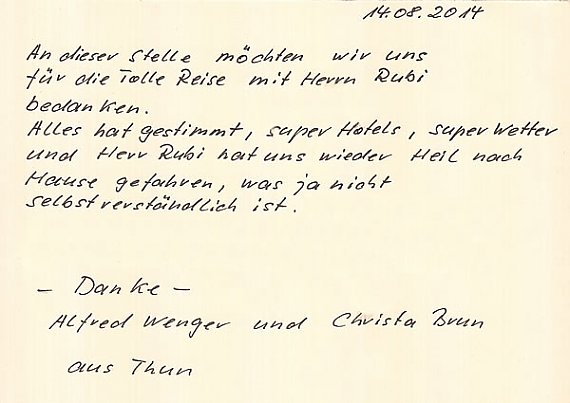 14.08.2014
An dieser Stelle möchten wir uns
für die Tolle Reise mit Herrn Rubi
bedanken.
Alles hat gestimmt, super Hotels, super Wetter
und Herr Rubi hat uns wieder Heil nach
Hause gefahren, was ja nicht
selbstverständlich ist.
- Danke -
Alfred Wenger und Christa Brun
aus Thun